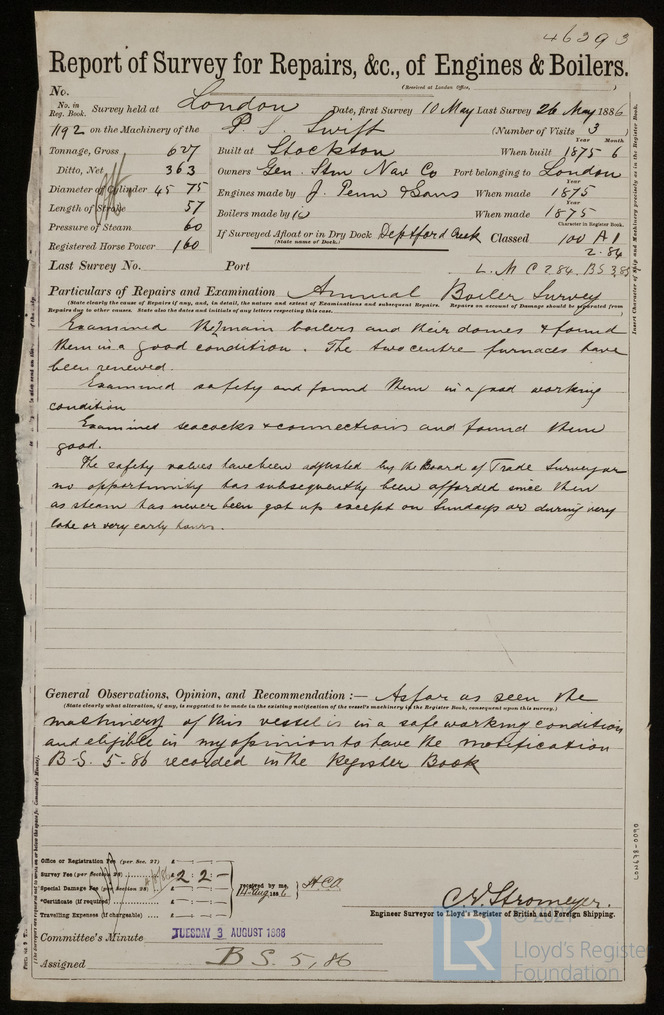 46393
Report of Survey for Repairs, &c., of Engines & Boilers.
(Received at London Office,
No.
No. in Reg. Book. Survey held at London Date, first Survey 10 May Last Survey 26 May 1886
1192 on the Machinery of the P. S. Swift (Number of Visits 3
Tonnage, Gross 627 Built at Stockton When built 1875 6
Year Month
Ditto, Net 363 Owners Gen. Stm Nav Co Port belonging to London
Diameter of Cylinder 45 75 Engines made by J. Penn & Sons When made 1875
Year
Length of Stroke 57 Boilers made by When made 1875
Year
Pressure of Steam 60 If Surveyed Afloat or in Dry Dock Deptford Creek Classed 100 A1
(State name of Dock.)
Character in Register Book.
Registered Horse Power 160 2.84
Last Survey No. Port L.M C 2 84. B S 3,85
Particulars of Repairs and Examination Annual Boiler Survey
(State clearly the cause of Repairs if any, and, in detail, the nature and extent of Examinations and subsequent Repairs. Repairs on account of Damage should be separated from
Repairs due to other causes. State also the dates and initials of any letters respecting this case.
Examined the 2 main boilers and their domes & found
them in a good condition. The two centre furnaces have
been renewed.
Examined safety and found them in a good working
condition
Examined seacocks & connections and found them
good.
The safety valves have been adjusted by the Board of Trade Surveyor
no opportunity has subsequently been afforded since then
as steam has never been got up except on Sundays or during very
late or very early hours.
General Observations, Opinion, and Recommendation :— As far as seen the
(State clearly what alteration, if any, is suggested to be made in the existing notification of the vessel's machinery in the Register Book, consequent upon this survey.)
machinery of this vessel is in a safe working condition
and eligible in my opinion to have the notification
B.S. 5-86 recorded in the Register Book
Office or Registration Fee (per Sec. 27) £
Survey Fee (per Section 28) £ 2 : 2 : -
Special Damage Fee (per Section 28) £ received by me, H.C.A.
14 Aug 1886
*Certificate (if required) £
Travelling Expenses (if chargeable) £
C. E. Stromeyer.
Engineer Surveyor to Lloyd's Register of British and Foreign Shipping.
Committee's Minute TUESDAY 3 AUGUST 1886
Assigned B S. 5, 86
Insert Character of Ship and Machinery precisely as in the Register Book.
LON678-0090
LR
© 2021
Lloyd's Register
Foundation